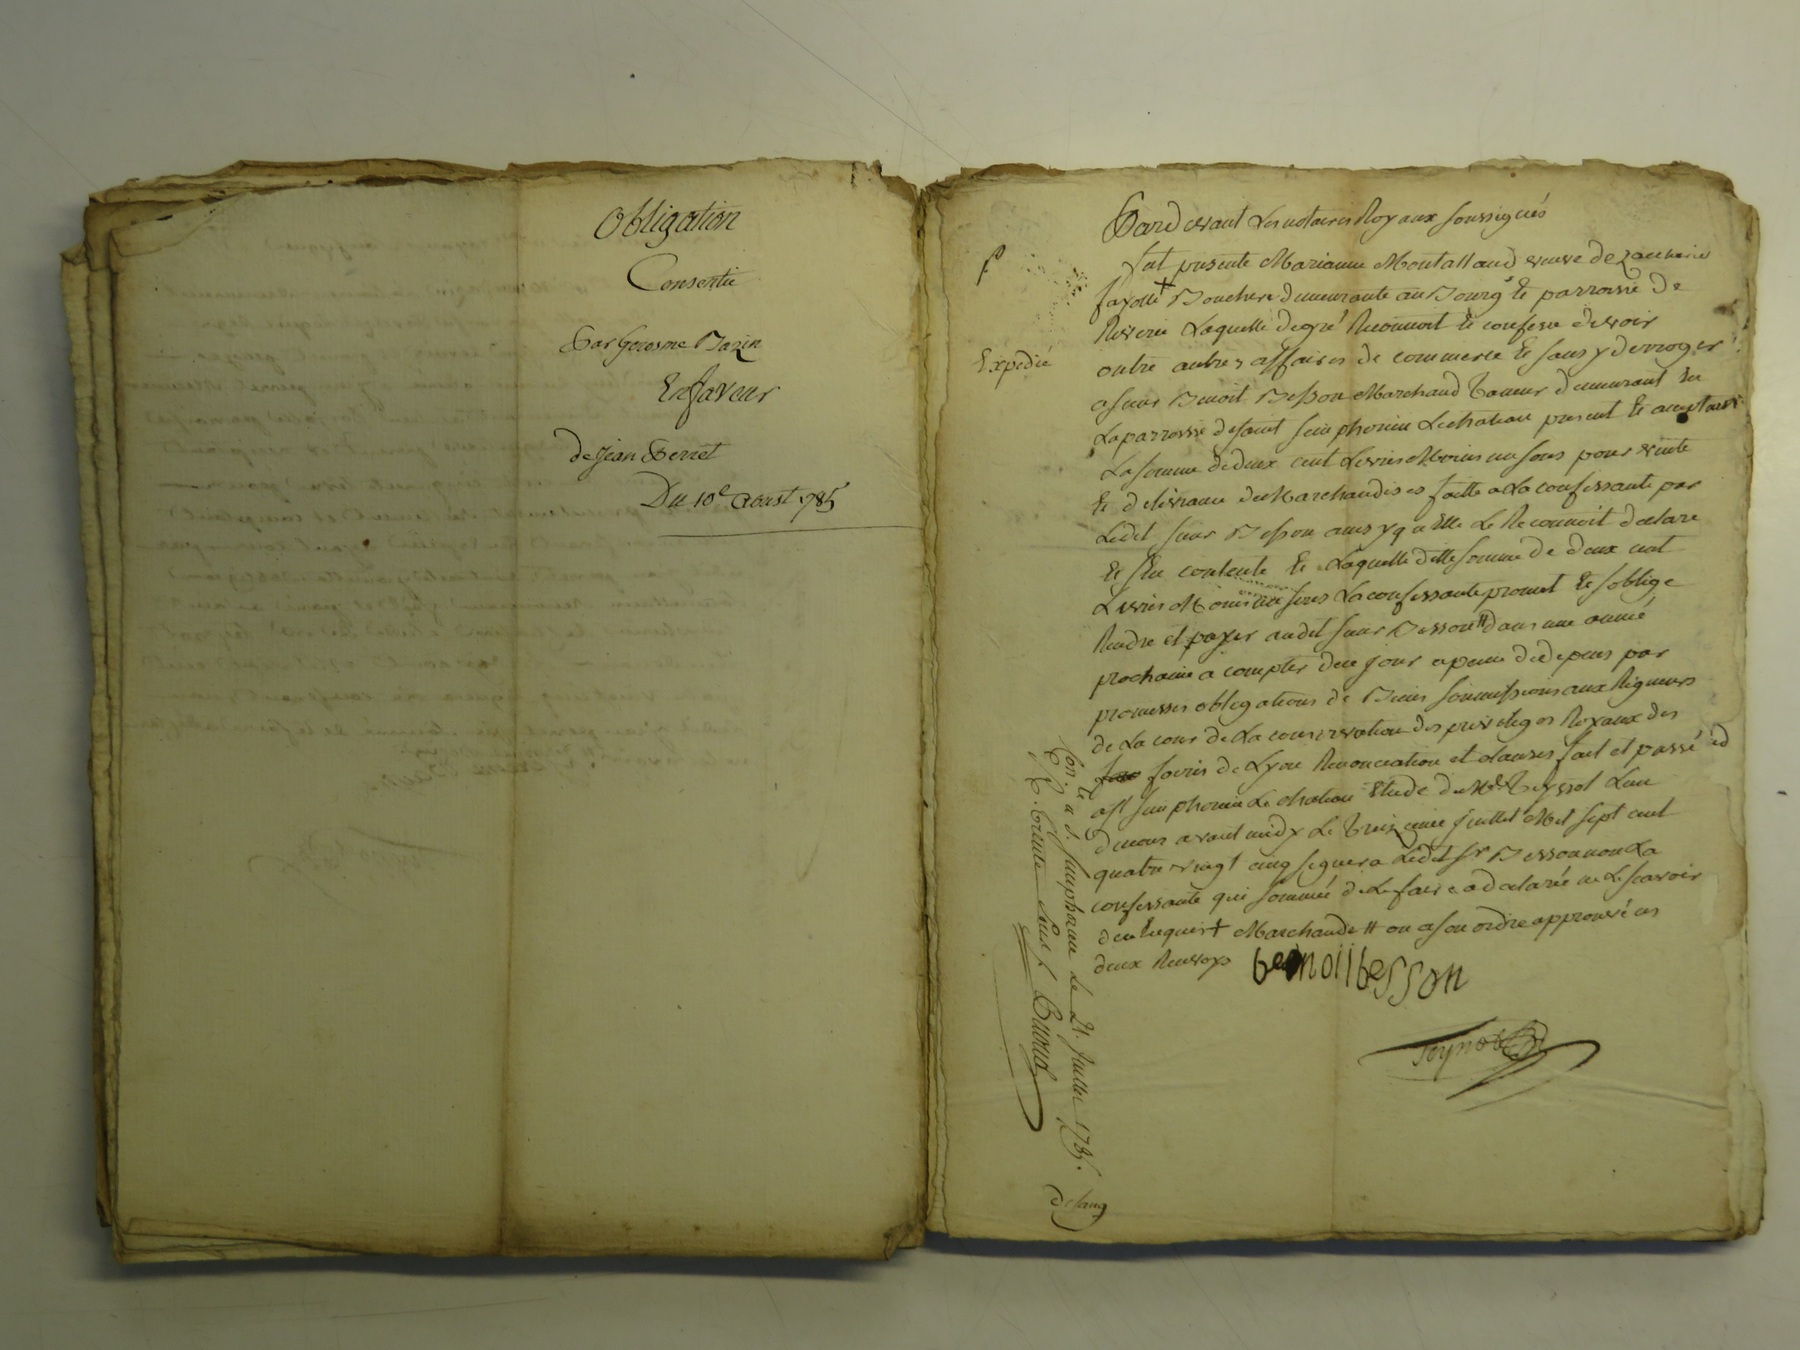 Obligation
Consentie
Par Gerosme Bazin
En faveur
de Jean Perret
Du 10e Aoust 1785
Pardevant Les notaires Royaux soussignés
fut presente Marianne Montalland veuve de Zacharie
fayolle + Bouchere demeurante au Bourg Et parroisse De
Riverie Laquelle de gré Reconnoit Et confesse devoir
Expedié
outre autres affaires de commerce Et sans y derroger
a sieur Benoit Besson Marchand Taneur demeurant En
La parroisse de saint simphorien Lechateau present Et acceptant
La somme de deux cent Livres Moins un sous pour vente
Et delivrance de Marchandises faitte a La confessante par
Ledit sieur Besson ainsy qu'Elle Le Reconnoit declare
Et s'En contente Et Laquelle ditte somme de deux cent
Livres Moins un sous La confessante promet Et s'oblige
Rendre et payer audit sieur Besson # dans une année
prochaine a compter de ce jour a peine de depens par
promesses obligations de Biens soumissions aux Rigueurs
de La cour de La conservation des privileges Royaux des
foires de Lyon Renonciation et clauses fait et passé
a st simphorien Le chateau Etude de Me Teyssot L'un
de nous avant midy Le Treizieme juillet Mil sept cent
quatre vingt cinq signera Ledit sr Besson non La
confessante qui sommée de Le faire a declarée ne Le scavoir
de ce Enquis + Marchande # ou a son ordre approuvé ces
deux Renvoys benoii besson
Con. Et a s. simphorien Le 21. juillet 1785.
R. trente sous